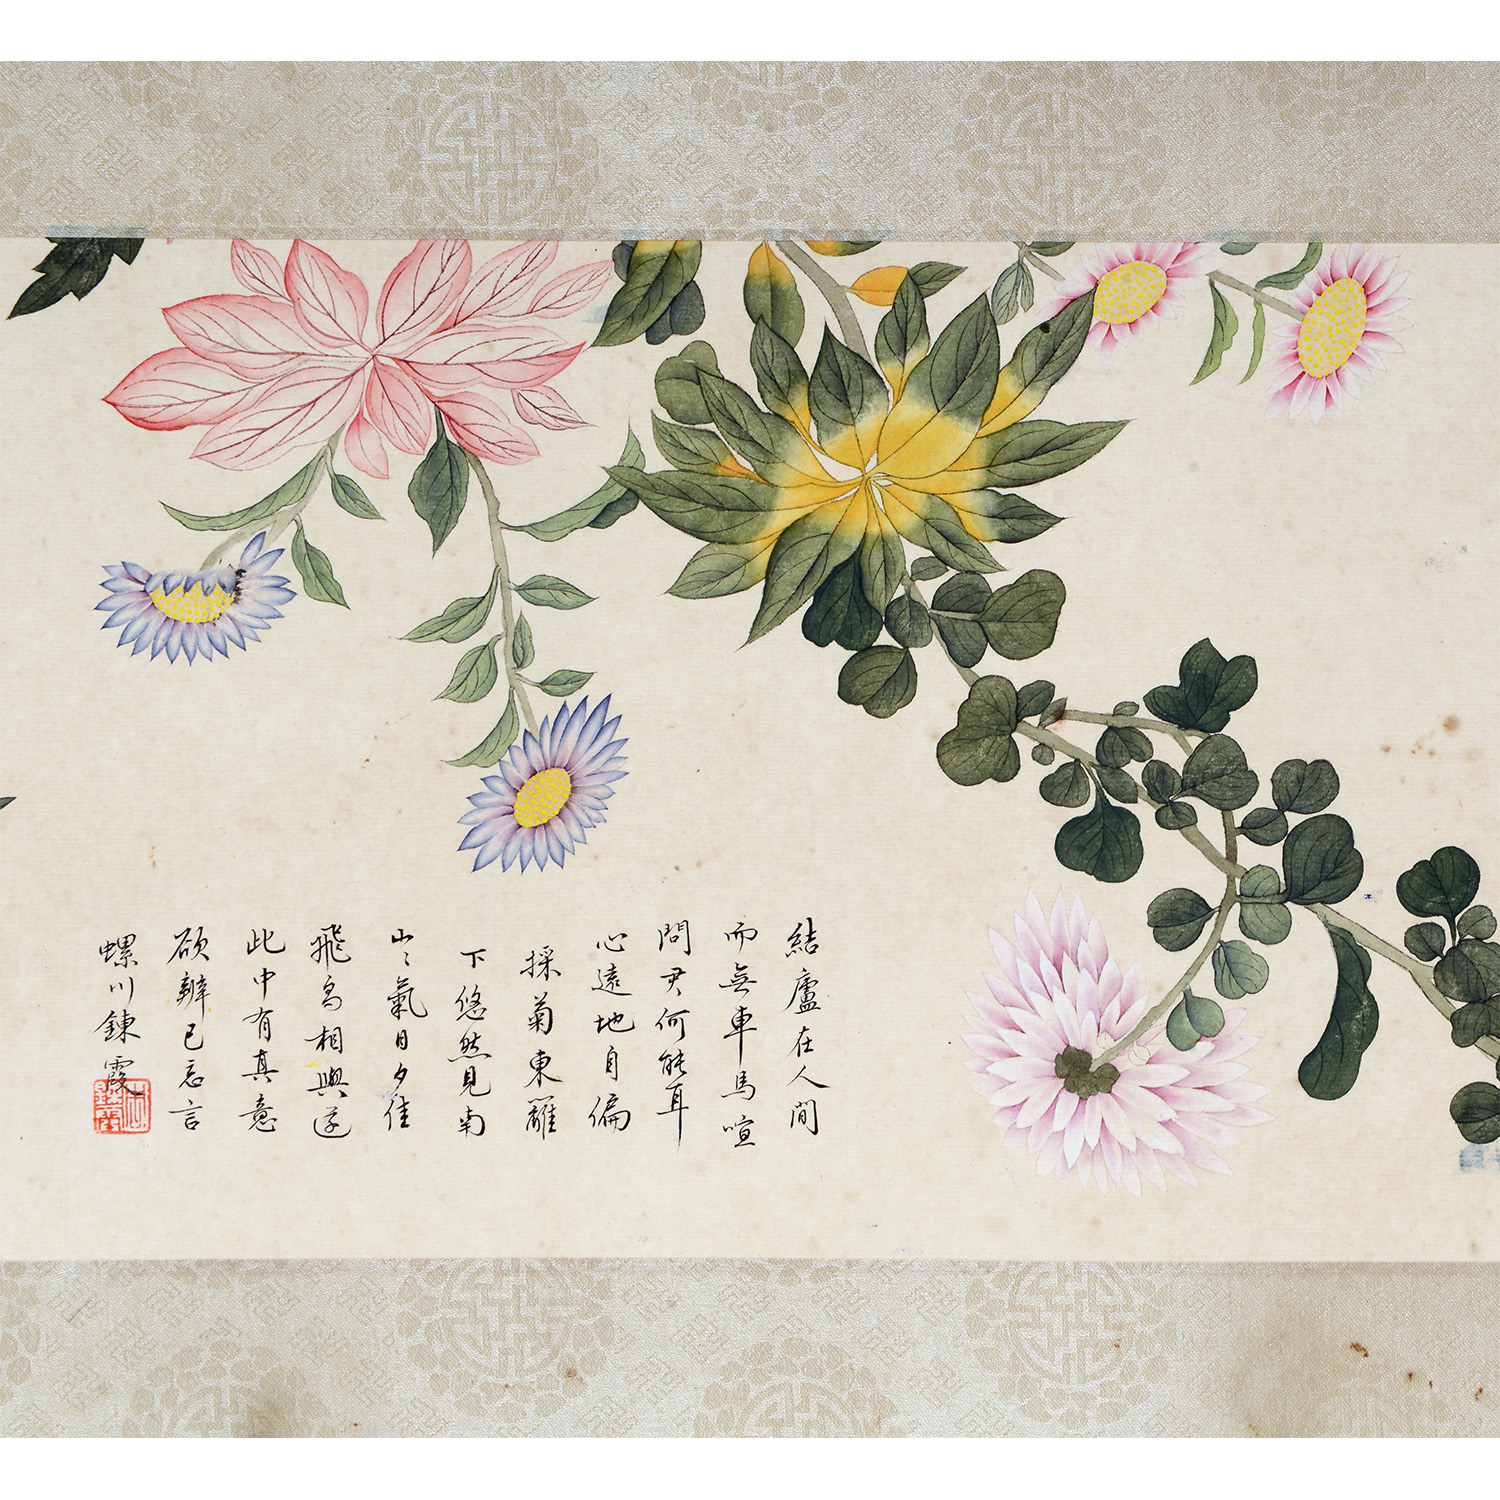 結廬在人間
而無車馬喧
問君何能耳
心遠地自偏
採菊東籬
下悠然見南
山〻氣日夕佳
飛鳥相與還
此中有真意
欲辨已忘言
螺川鍊霞